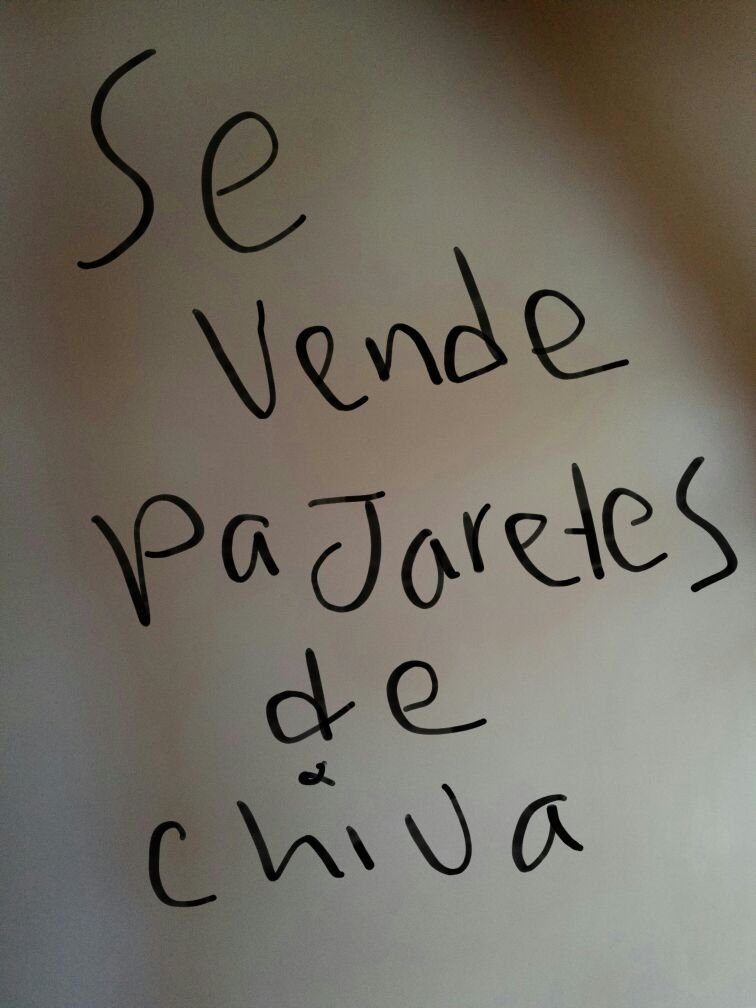 Se
Vende
PaJaretes
de
chiva